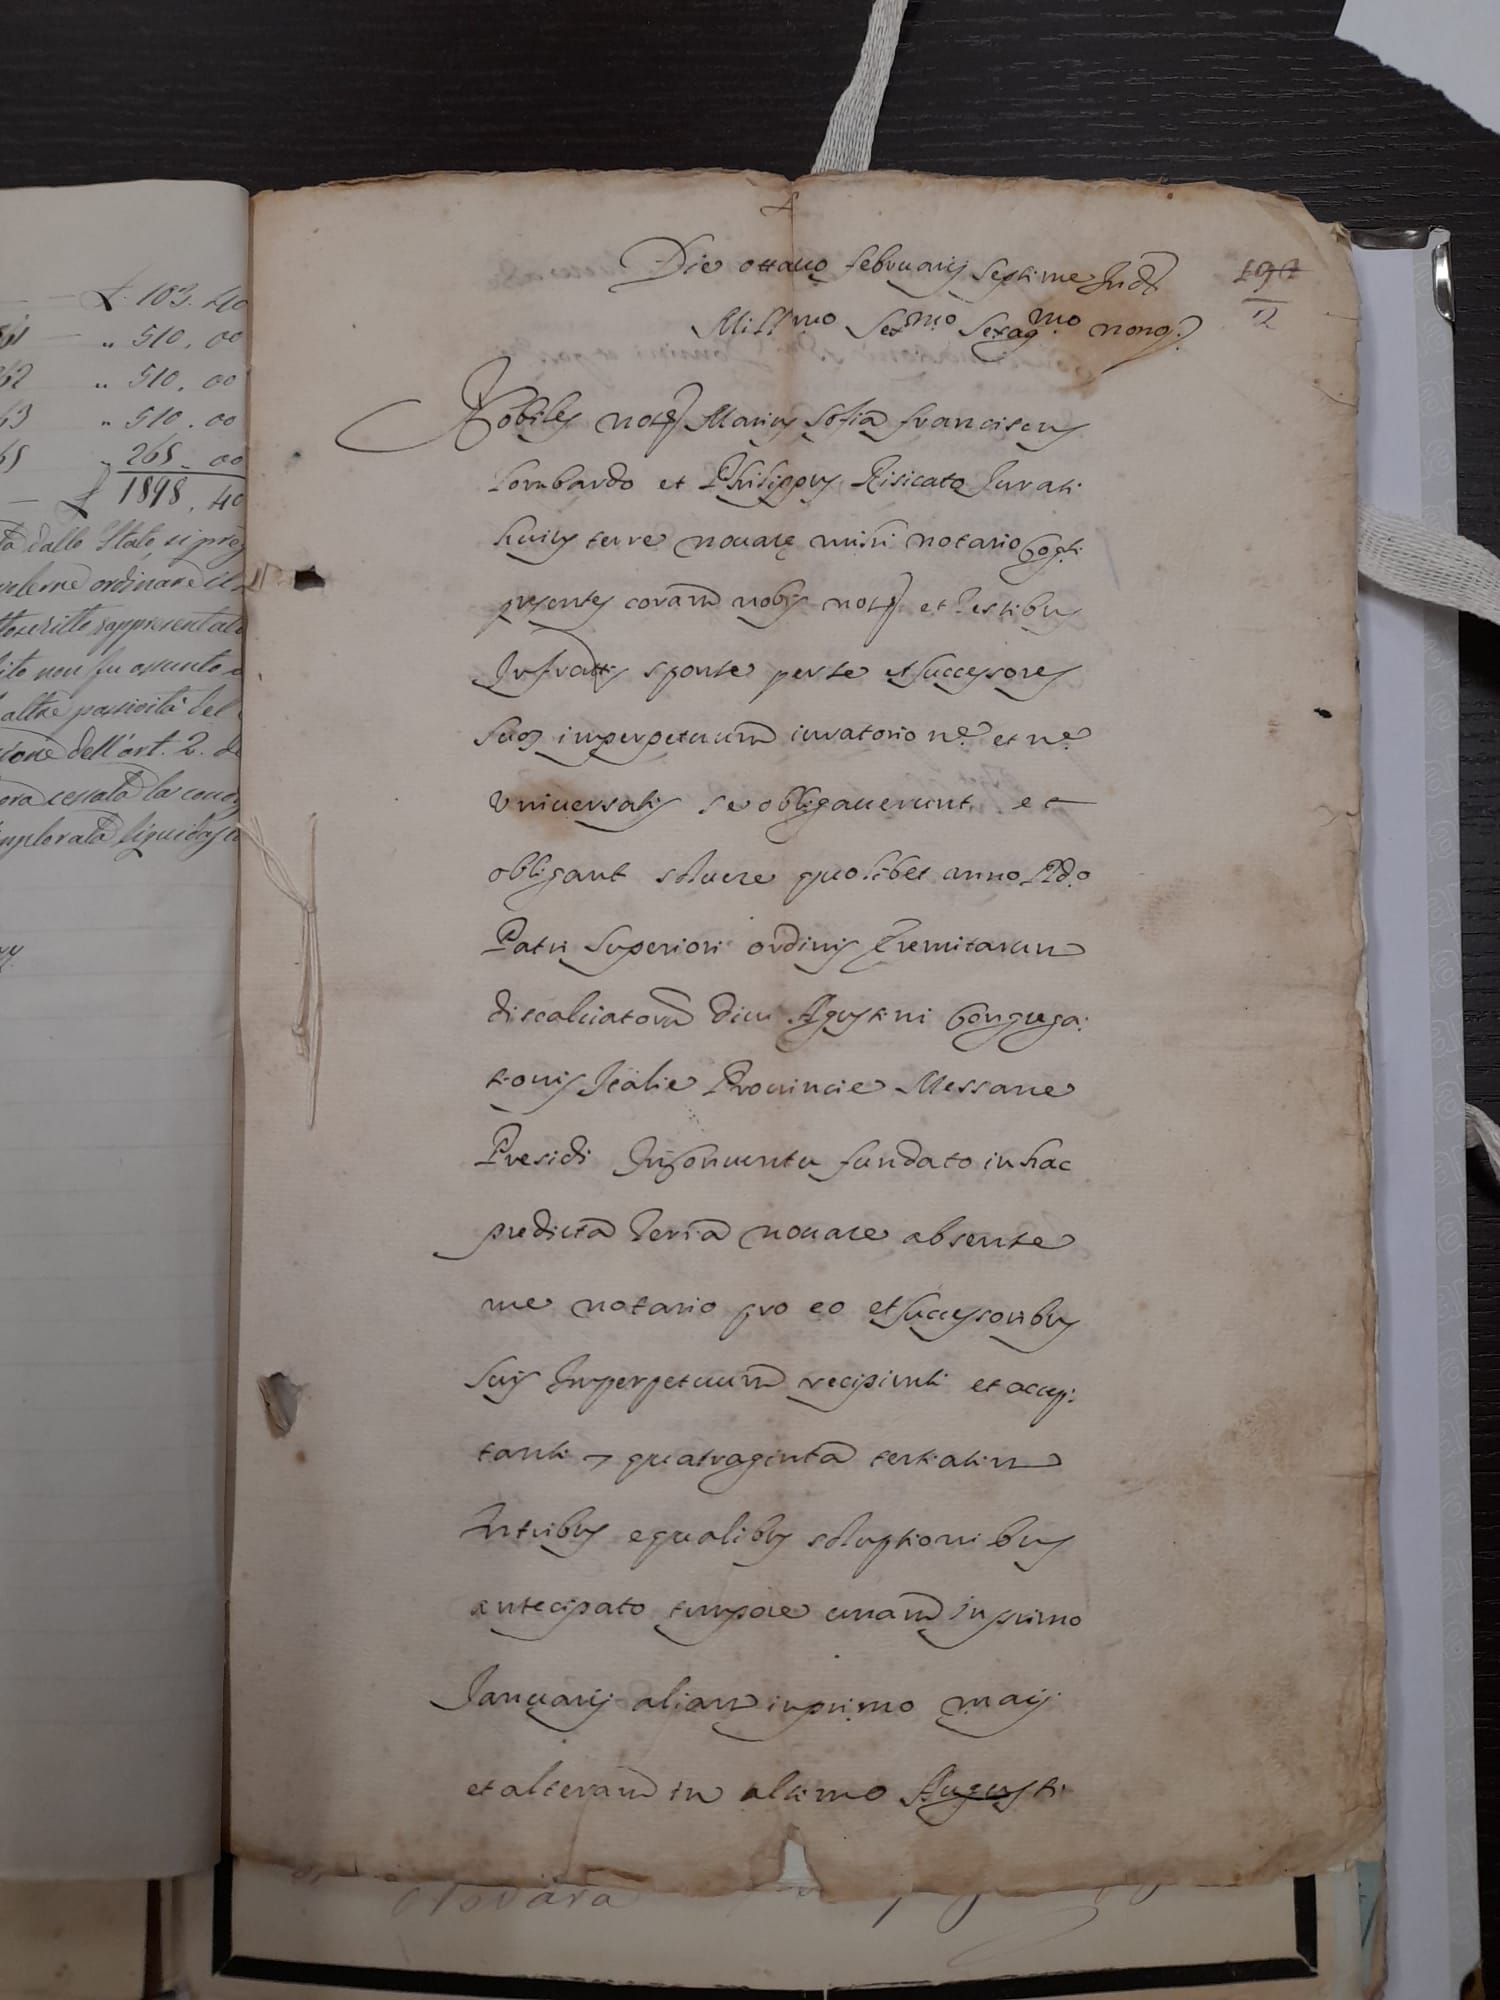 £. 103. 40
" 510. 00
62 " 510. 00
63 " 510. 00
65 " 265. 00
£ 1898. 40
dallo Stato, si
ordinare il
rappresentat
non fu assunto
altre passività del
dell'art. 2. de
cessata la
liquidaz
†
Die ottavo februarij septime Indᵉ
Millᵐᵒ Sexᵐᵒ Sexagᵐᵒ nono.
197
12
Nobiles notᵉ Marius Sofia franciscus
Lombardo et Philippus Risicato Jurati
huius terre novare mihi notario cogᵗⁱ
presentes coram nobis notᵒ et testibus
Infrattis sponte per se et successores
suos imperpetuum iuratorio nᵉ. et nᵉ.
Universalis se obligaverunt et
obligant solvere quolibet anno Rdo
Patri Superiori ordinis Eremitarum
discalciatorum divi Agustini Congrega:
tionis Italie Provincie Messane
Presidi In Conventu fundato in hac
predicta terra novare absente
me notario pro eo et successoribus
suis Imperpetuum recipienti et accep:
tanti quatraginta tertiatim
In tribus equalibus solutionibus
antecipato tempore unam in primo
Januarij aliam in primo maij
et alteram in ultimo Augusti
Novara